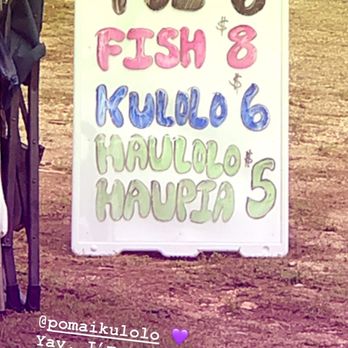 FISH $8
KULOLO $6
HAULOLO
HAUPIA $5
@pomaikulolo 💜
Yay,